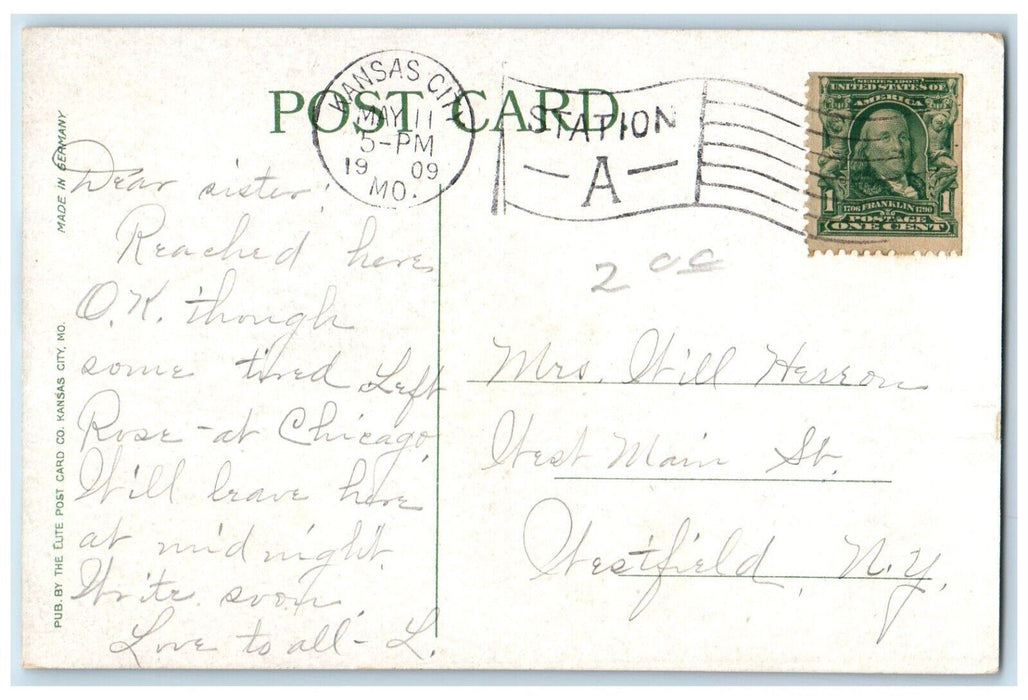 POST CARD
KANSAS CITY
MAY 11
5-PM
1909
MO.
STATION
A
SERIES 1902
UNITED STATES OF
AMERICA
1706 FRANKLIN 1790
1 1
POSTAGE
ONE CENT
MADE IN GERMANY
PUB. BY THE ELITE POST CARD CO. KANSAS CITY, MO.
Dear sister:
Reached here
O.K. though
some tired Left
Rose - at Chicago.
Will leave here
at midnight.
Write soon.
Love to all - L.
2 00
Mrs. Will Herron
West Main St.
Westfield, N.Y.